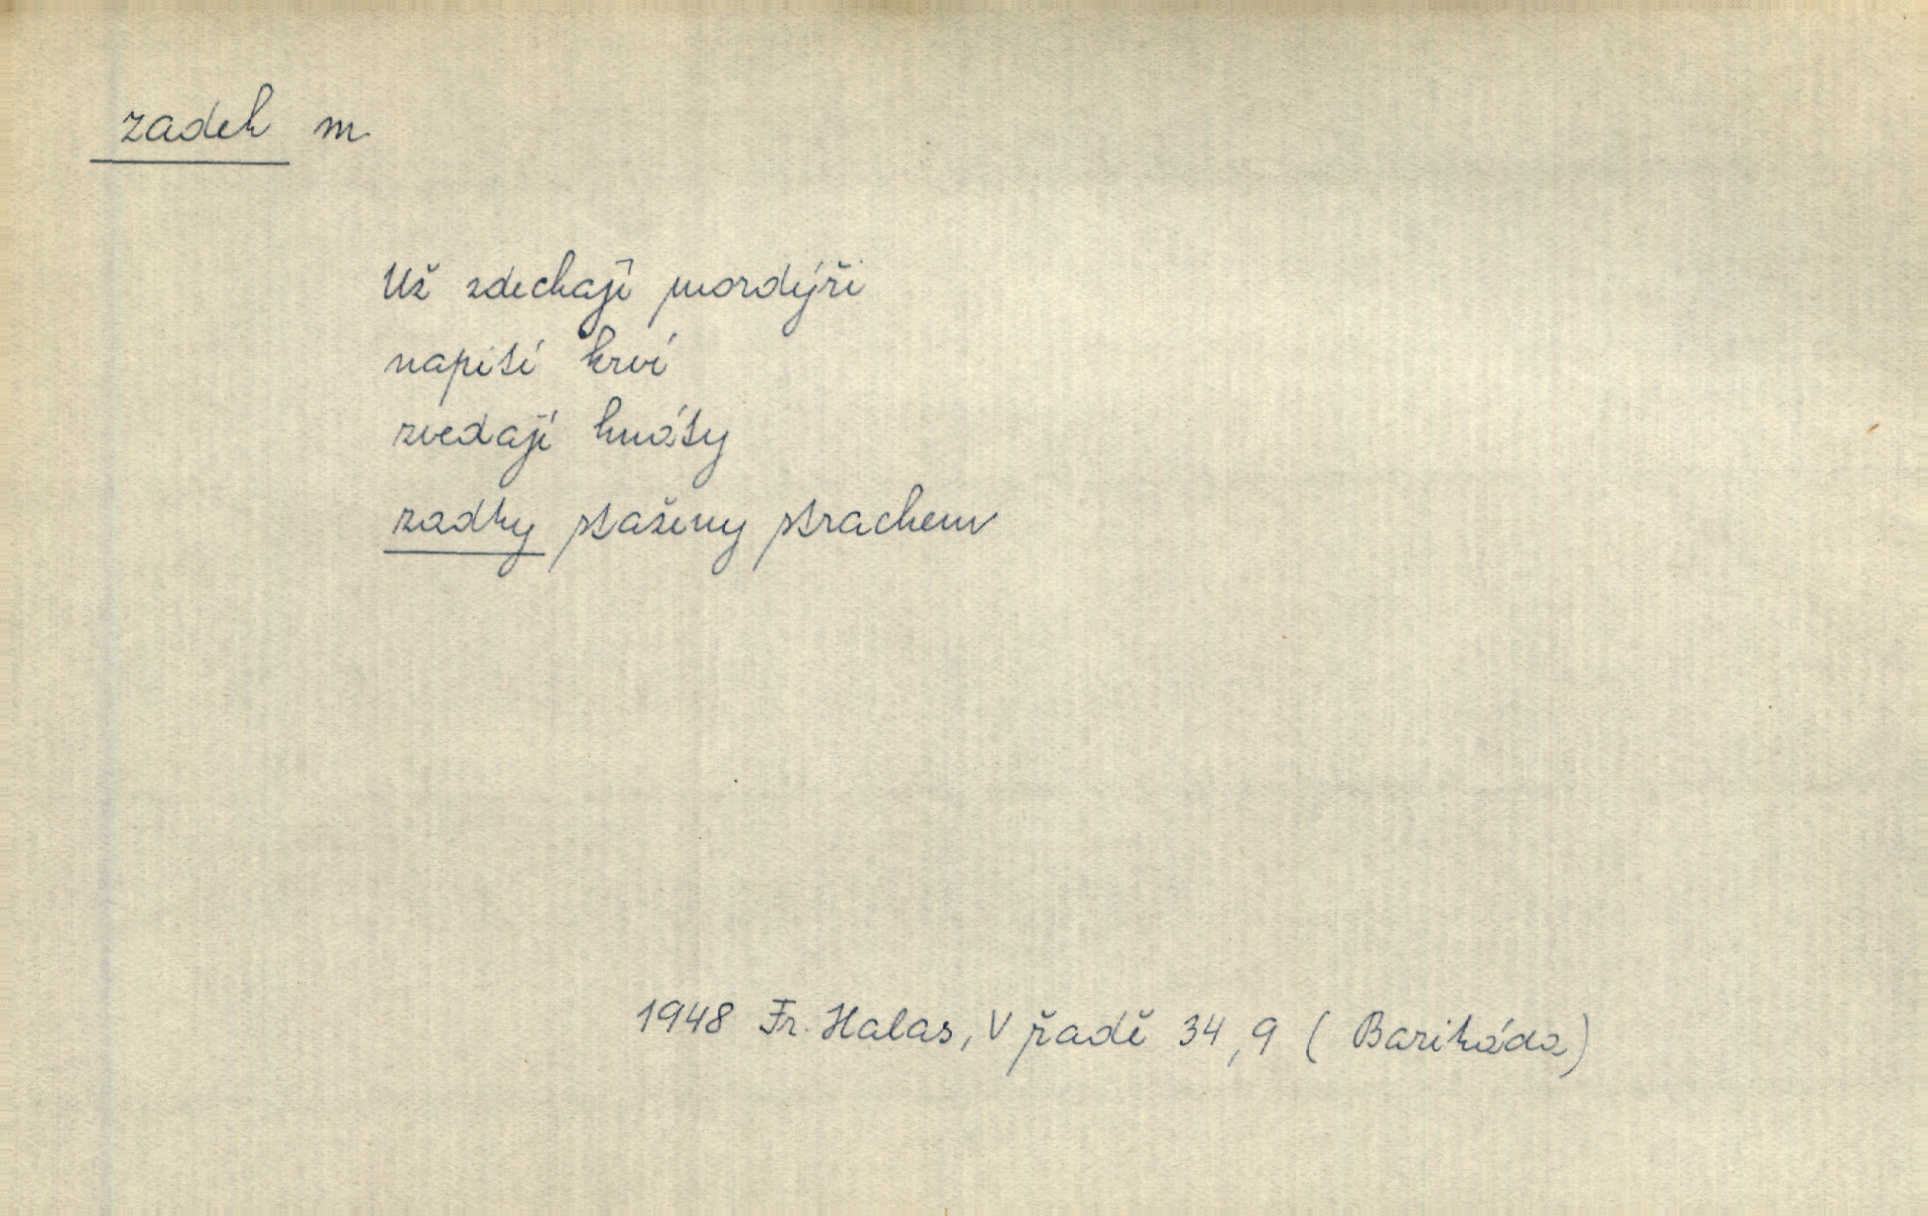 zadek m
Už zdechají mordýři
napití krví
zvedají hnáty
zadky staženy strachem
1948 Fr. Halas, V řadě 34,9 (Barikáda)